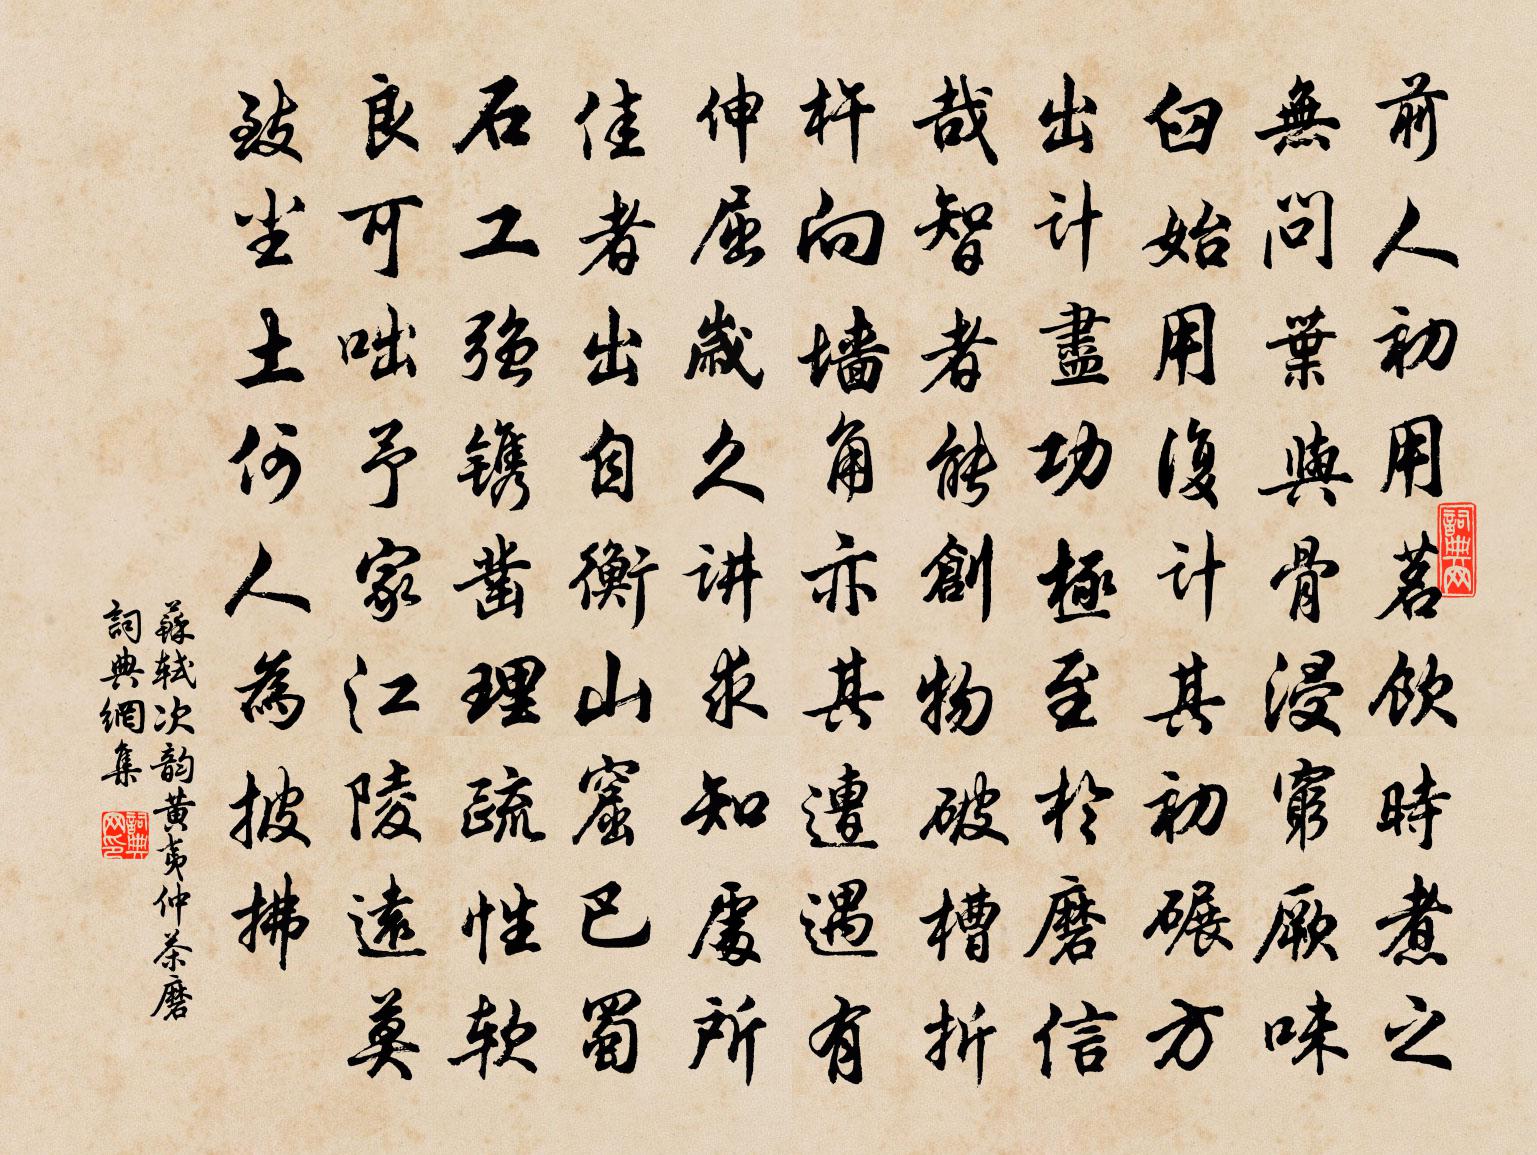 前人初用茗飲時煮之
無問葉與骨浸窮厥味
臼始用復計其初碾方
出計盡功極至於磨信
哉智者能創物破槽折
杵向墙角亦其遭遇有
伸屈歲久讲求知處所
佳者出自衡山窟巴蜀
石工强镌凿理疏性软
良可咄予家江陵遠莫
致尘土何人為披拂
蘇轼次韵黄夷仲茶磨
詞典網集
詞典网
詞典网印